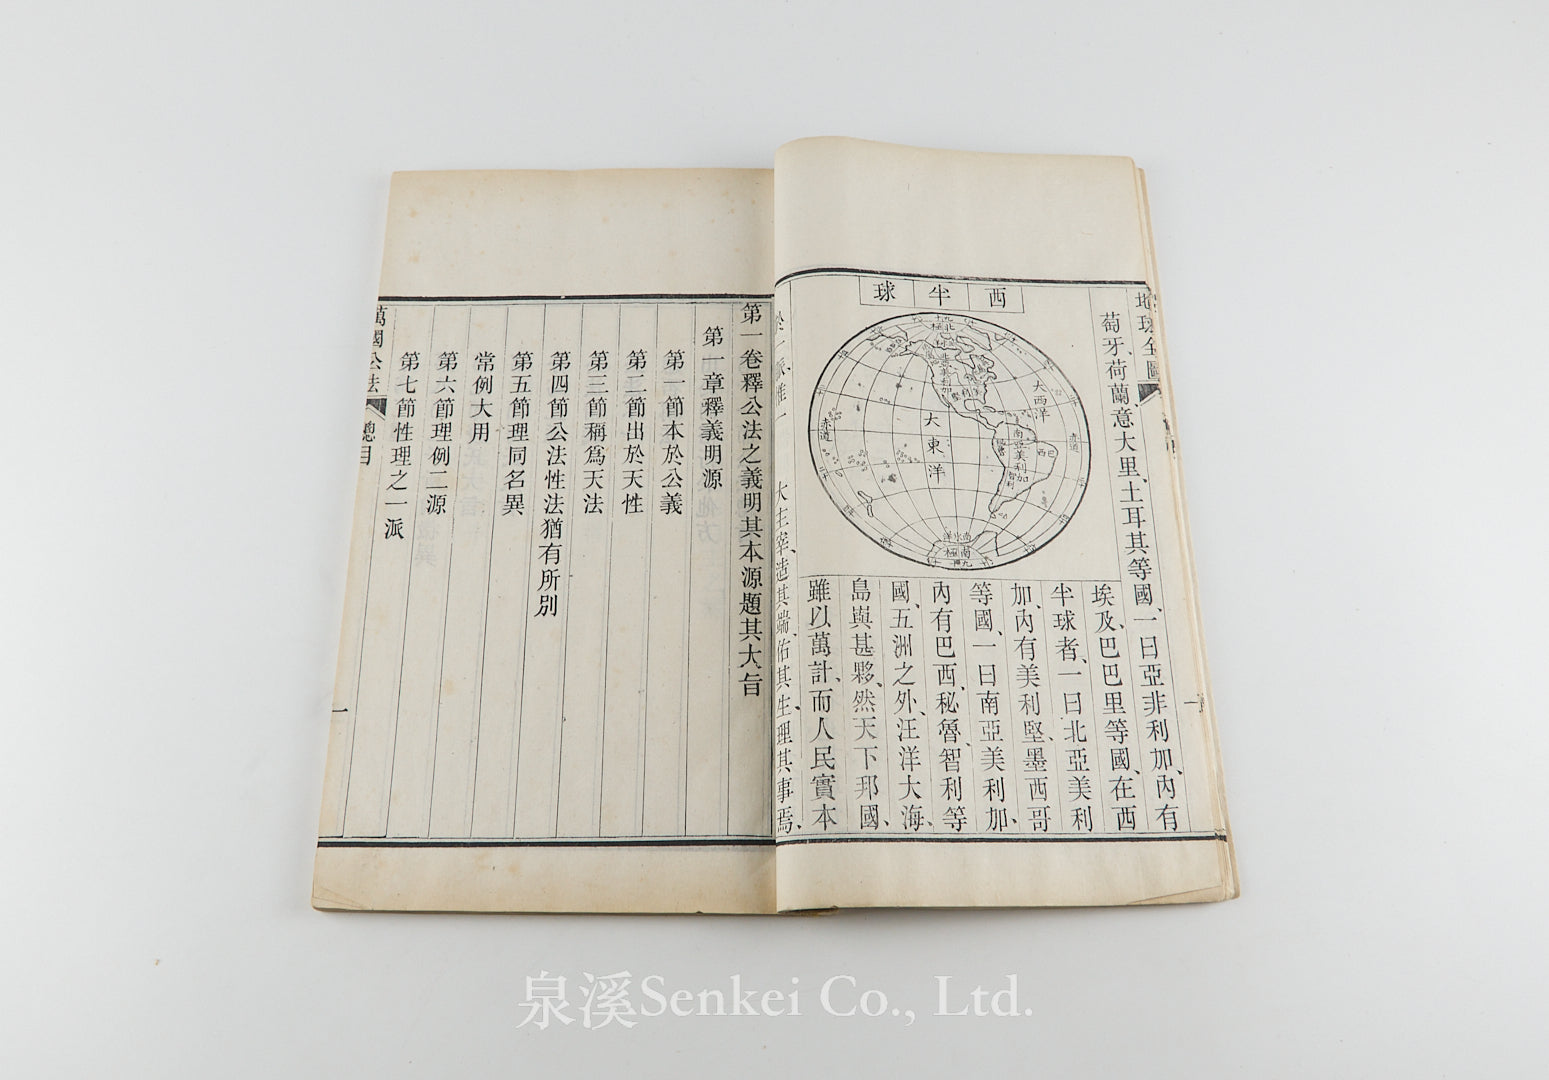 地球全圖
西半球
萄牙、荷蘭、意大里、土耳其等國、一曰亞非利加、內有
埃及、巴巴里等國、在西
半球者、一曰北亞美利
加、內有美利堅、墨西哥
等國、一曰南亞美利加、
內有巴西、秘魯、智利等
國、五洲之外、汪洋大海、
島嶼甚夥、然天下邦國、
雖以萬計、而人民實本
於一派、惟一大主宰、造其端、佑其生、理其事焉、
大東洋
大西洋
赤道
赤道
南亞美利加
北亞美利加
巴西
智利
南冰洋
一
第一卷釋公法之義明其本源題其大旨
第一章釋義明源
第一節本於公義
第二節出於天性
第三節稱爲天法
第四節公法性法猶有所別
第五節理同名異
常例大用
第六節理例二源
第七節性理之一派
萬國公法
總目
一
泉溪Senkei Co., Ltd.